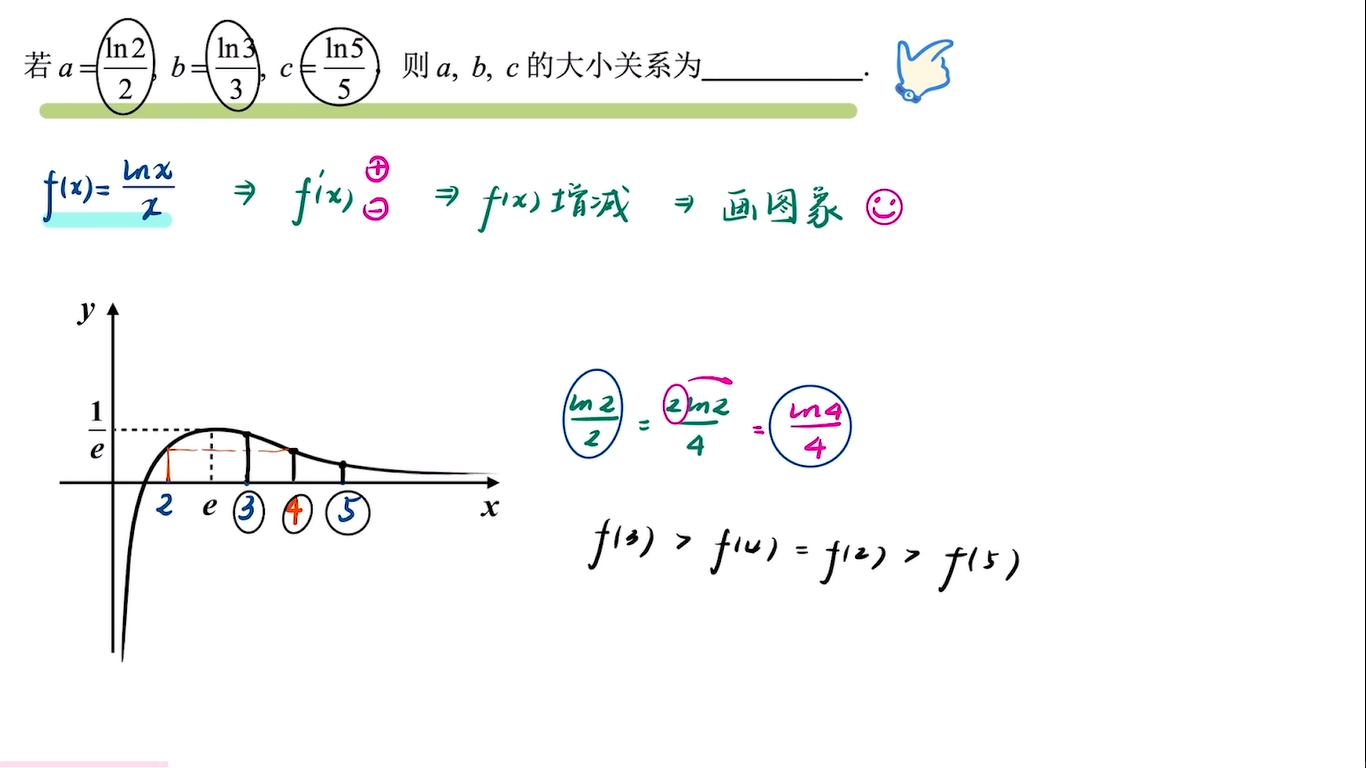 若 a = ln2/2, b = ln3/3, c = ln5/5, 则 a, b, c 的大小关系为________.
f(x) = lnx/x ⇒ f'(x) ⊕ ⊖ ⇒ f(x) 增减 ⇒ 画图象
y
1/e
2 e 3 4 5 x
ln2/2 = 2ln2/4 = ln4/4
f(3) > f(4) = f(2) > f(5)